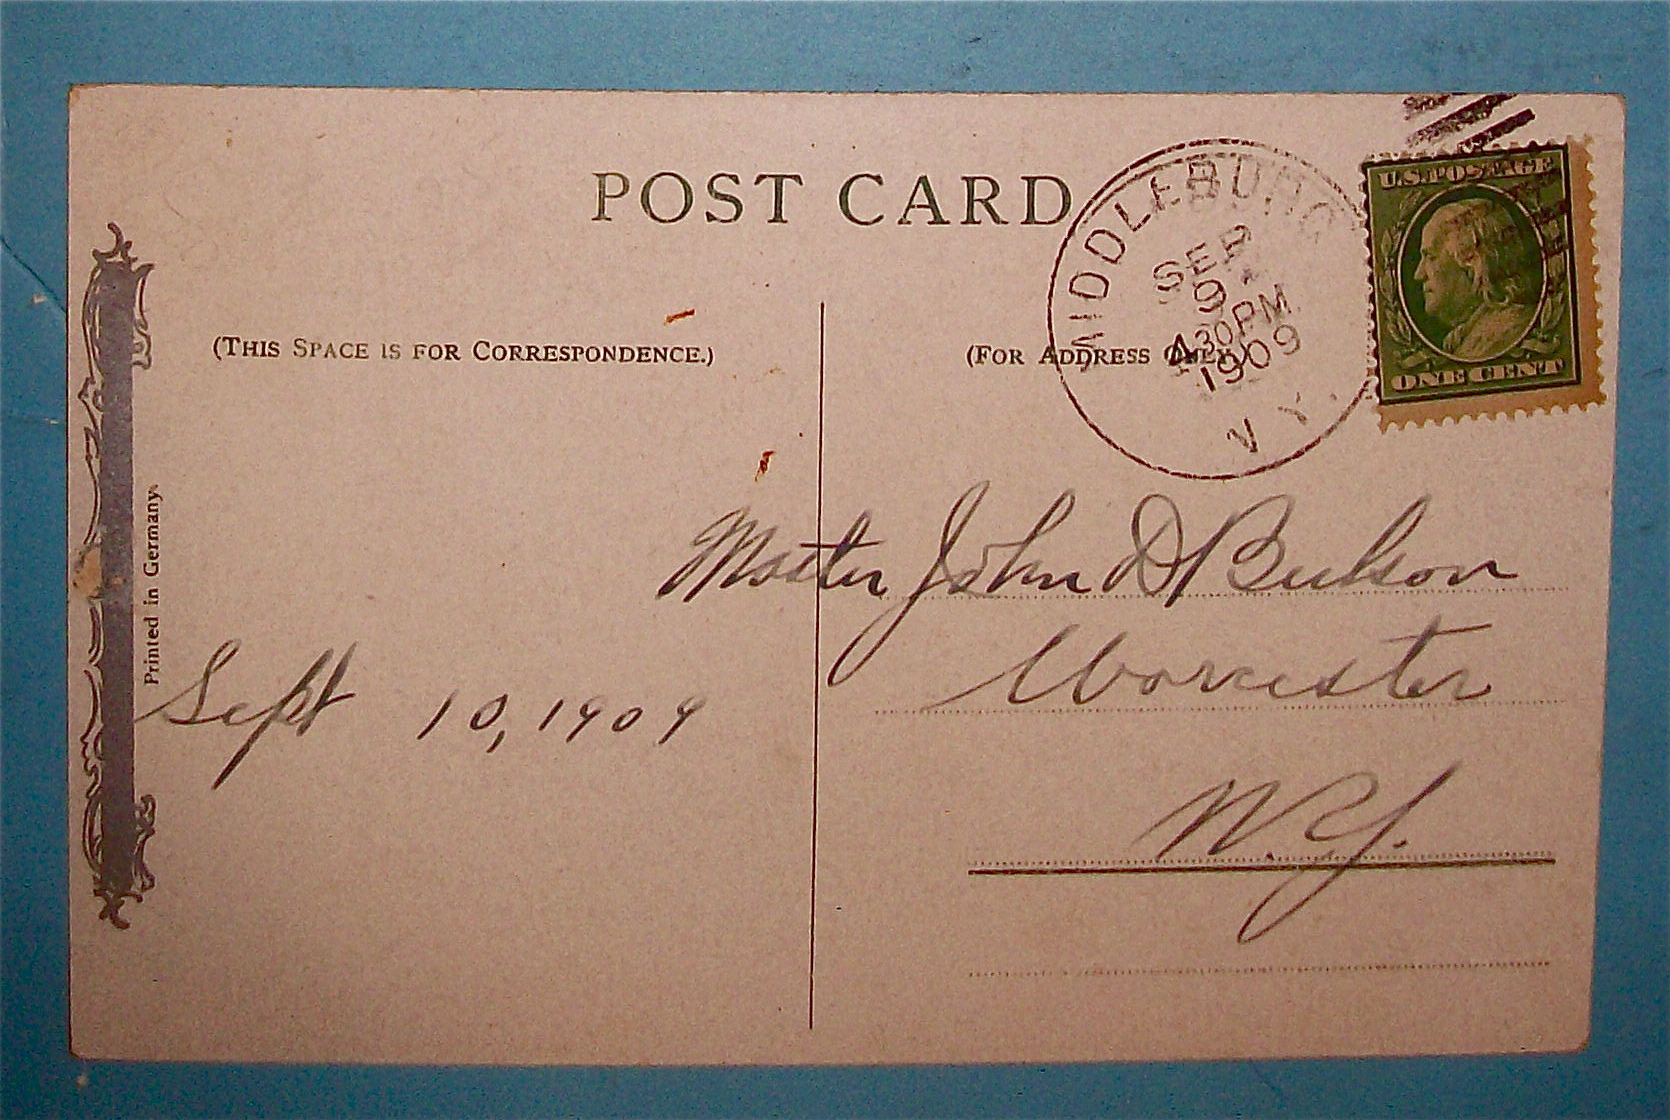 POST CARD
MIDDLEBURG
SEP
9
4 30 PM
1909
N.Y.
U.S. POSTAGE
ONE CENT
(THIS SPACE IS FOR CORRESPONDENCE.)
(FOR ADDRESS ONLY.)
Printed in Germany
Master John D Bulson
Worcester
N.Y.
Sept 10, 1909